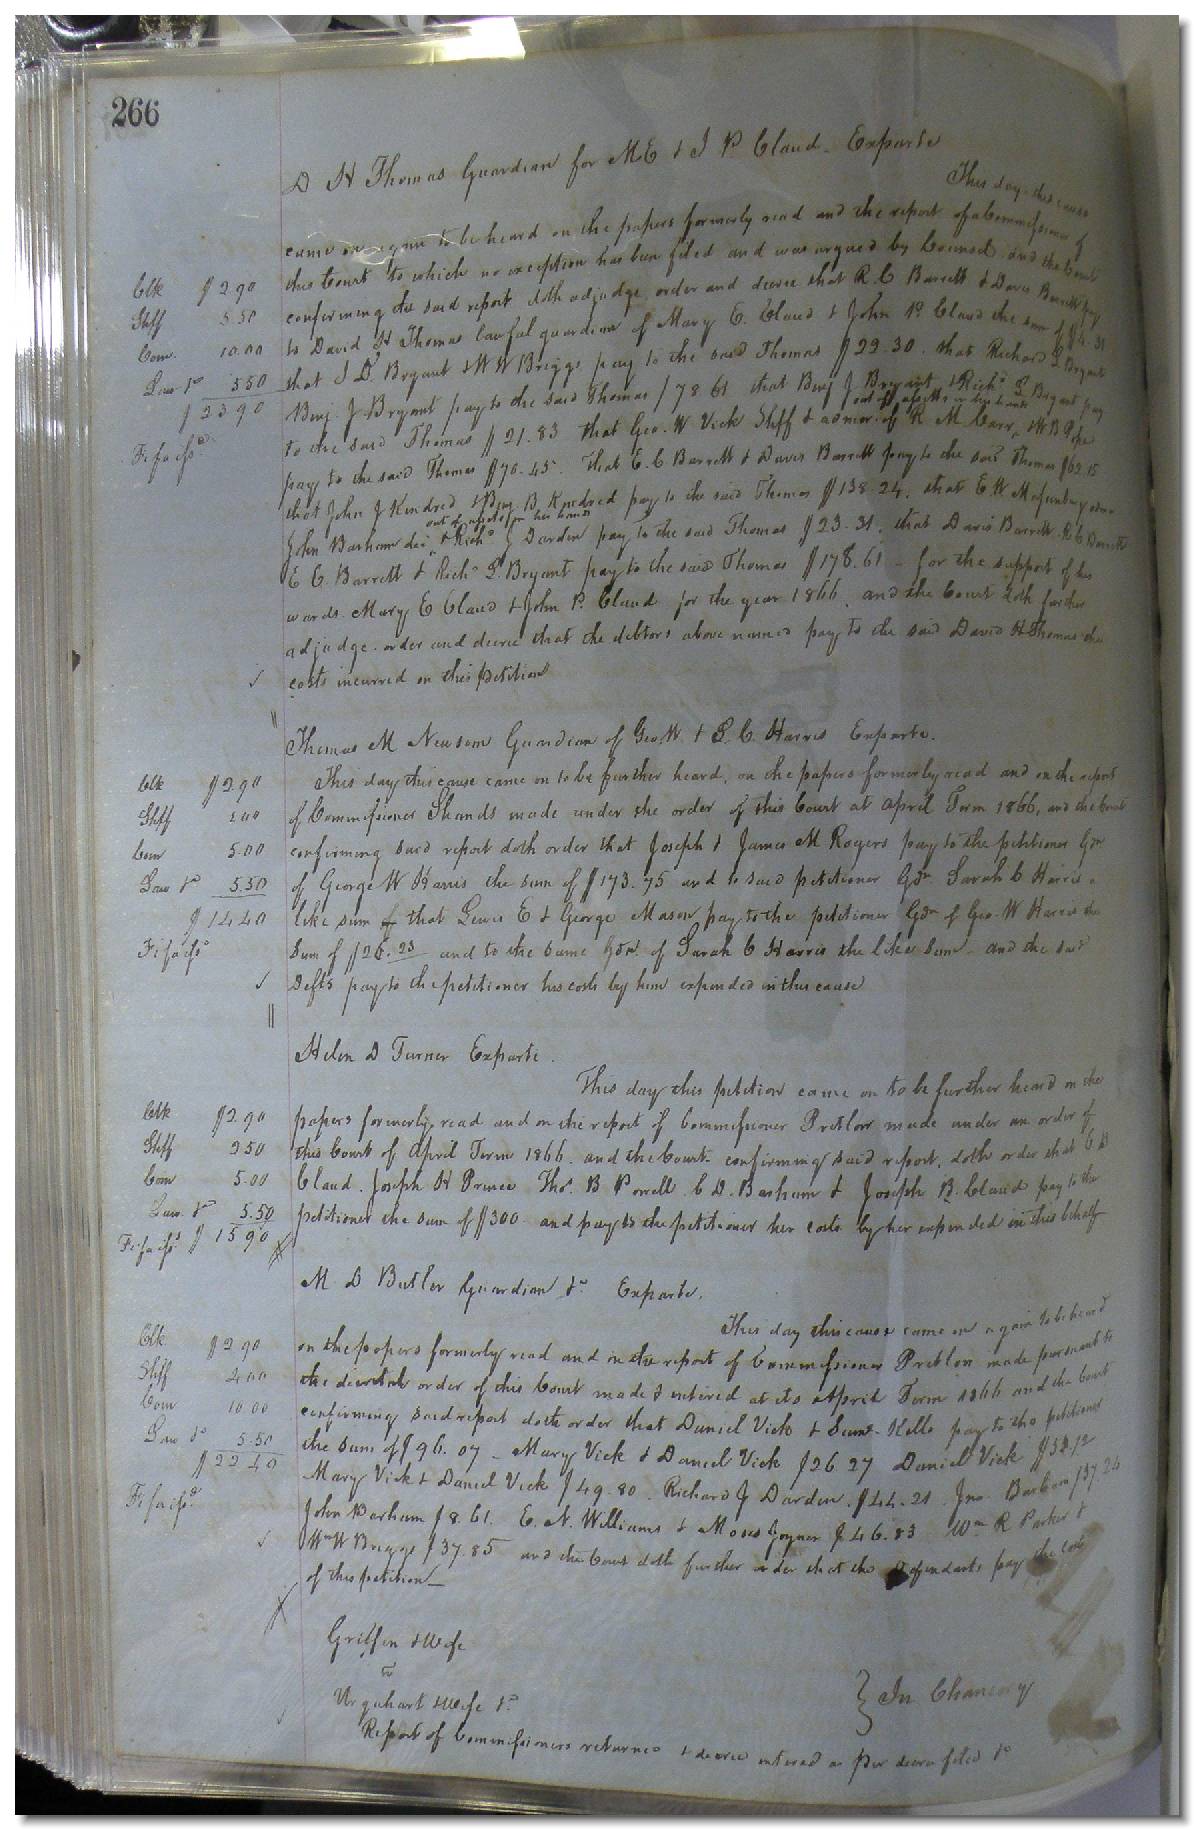 266
D H Thomas Guardian for M E & J P Claud. Exparte
This day this cause
came on again to be heard on the papers formerly read and the report of a Commissioner of
Clk $2.90 this Court to which no exception has been filed and was argued by Counsel, and the Court
Shff 5.50 confirming the said report doth adjudge, order and decree that R. C Barrett & Davis Barrett pay
Com. 10.00 to David H Thomas lawful guardian of Mary E. Claud & John P. Claud the sum of
Law &c 5.50 that J D. Bryant & W W Briggs pay to the said Thomas $29.30. that Richard L Bryant
$23.90 Benj. J Bryant pay to the said Thomas $78 61 that Benj J Bryant & Richd L Bryant pay
to the said Thomas $21.83 that Geo. W Vick Shff & admor. of R M Carr, out of assets in his hands & W B Pope
Fi fa isd. pay to the said Thomas $70.45. That E. C Barrett & Davis Barrett pay to the said Thomas $62 15
that John J Kindred & Benj B. Kindred pay to the said Thomas $138.24, that E. W
John Barham dec. out of assets in her hands & Richd J Darden pay to the said Thomas $23.31, that Davis Barrett. R C Barrett
E C. Barrett & Richd L. Bryant pay to the said Thomas $178.61 - for the support of his
wards Mary E Claud & John P. Claud for the year 1866, and the Court doth further
adjudge. order and decree that the debtors above named pay to the said David H Thomas the
✓ costs incurred on this petition
Thomas M Newsom Guardian of Geo. W. & S. C. Harris Exparte.
Clk $2.90 This day this cause came on to be further heard, on the papers formerly read and on the report
Shff 1.00 of Commissioner Shands made under the order of this Court at April Term 1866, and the Court
Com 5.00 confirming said report doth order that Joseph & James M Rogers pay to the petitioner Gdn
Law &c 5.50 of George W Harris the sum of $173.75 and to said petitioner Gdn. Sarah C Harris a
$14.40 like sum & that Lewis E & George Mason pay to the petitioner Gdn of Geo. W Harris the
Fi fa isd sum of $26.23 and to the same Gdn. of Sarah C Harris the like sum - and the said
✓ Defts pay to the petitioner his costs by him expended in this cause
Helen D Turner Exparte.
This day this petition came on to be further heard on the
Clk $2.90 papers formerly read and on the report of Commissioner Pretlow made under an order of
Shff 2.50 this Court of April Term 1866. and the Court confirming said report, doth order that C D
Com 5.00 Claud. Joseph H Prince Thos. B Powell C D. Barham & Joseph B. Claud pay to the
Law &c 5.50 petitioner the sum of $300 and pay to the petitioner her costs by her expended in this behalf
Fi fa isd. $15 90
M D Butler Guardian &c Exparte.
This day this cause came on again to be heard
Clk $2 90 on the papers formerly read and on the report of Commissioner Pretlow made pursuant to
Shff 4.00 the decretal order of this Court made & entered at its April Term 1866 and the Court
Com 10.00 confirming said report doth order that Daniel Vick & Saml. Kello pay to the petitioner
Law &c 5.50 the sum of $96.07 - Mary Vick & Daniel Vick $26 27 Daniel Vick
$22 40 Mary Vick & Daniel Vick $49.80. Richard J Darden. $44.21 Jno Barham $37.26
Fi fa isd. John Parham $8.61. E. N. Williams & Moses Joyner $46.83 Wm R Parker &
✓ Wm W Briggs $37.85 and the Court doth further order that the defendants pay the costs
of this petition
Griffin & Wife
vs
Urquhart & Wife &c } In Chancery
Report of Commissioners returned & decree entered as per decree filed &c